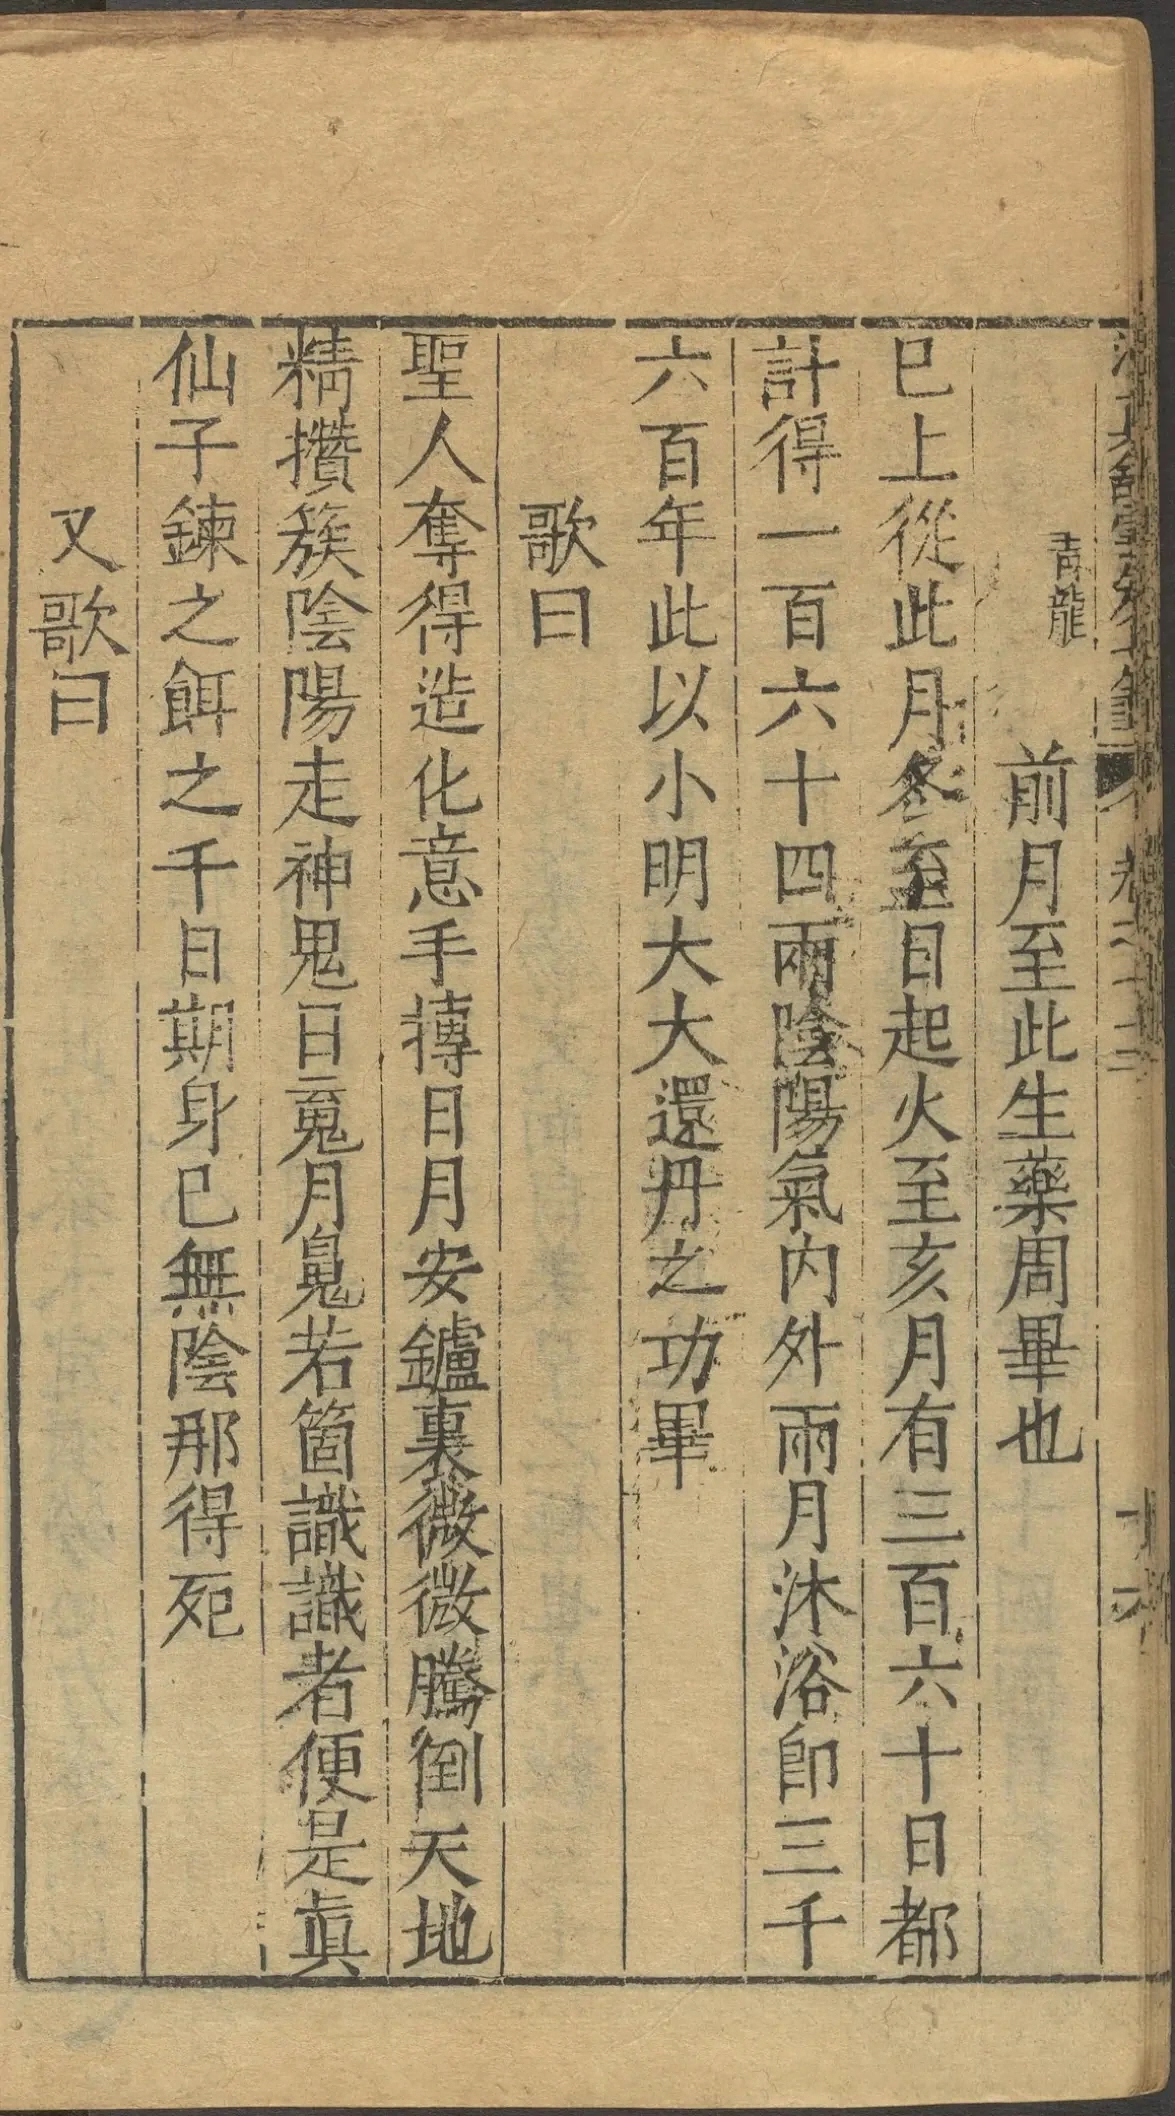 青龍
前月至此生藥周畢也
巳上從此月冬至日起火至亥月有三百六十日都
計得一百六十四兩陰陽氣内外兩月沐浴即三千
六百年此以小明大大還丹之功畢
歌曰
聖人奪得造化意手摶日月安鑪裏微微騰倒天地
精攢簇陰陽走神鬼日䰟月鬼若箇識識者便是眞
仙子鍊之餌之千日期身巳無陰那得死
又歌曰